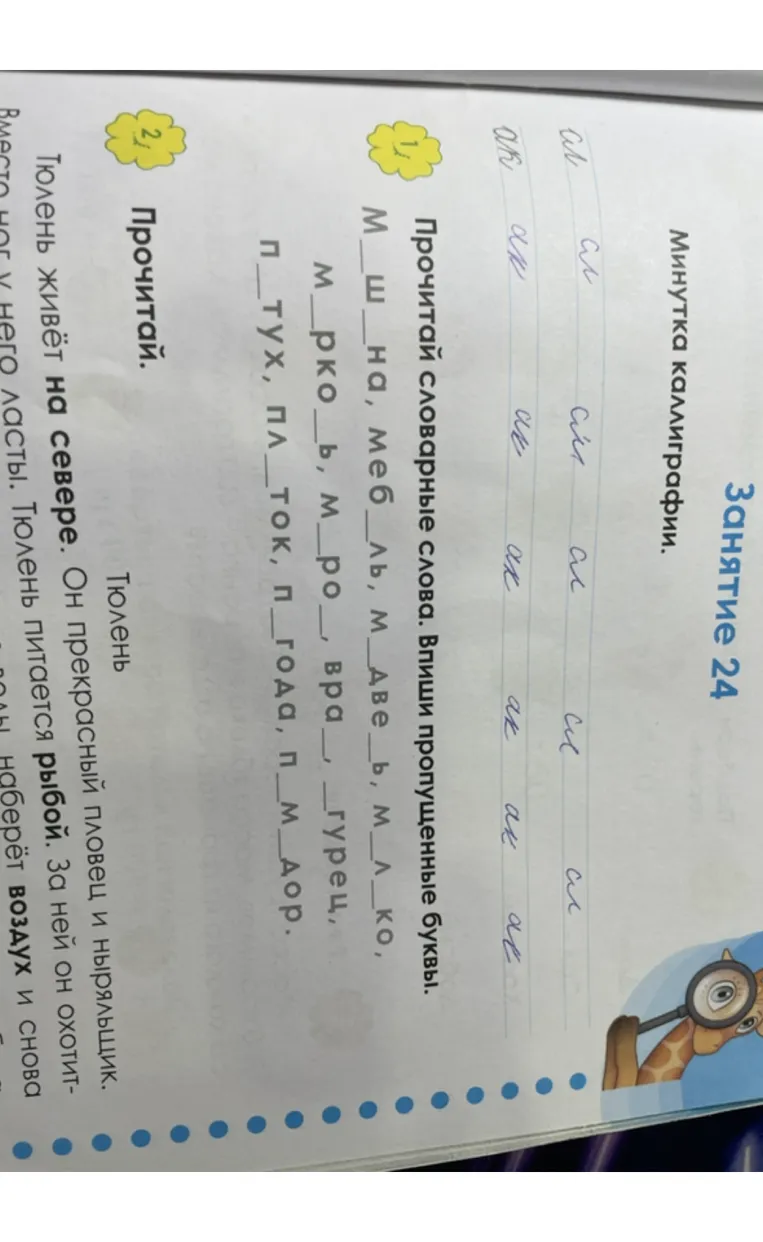 Занятие 24
Минутка каллиграфии.
ал ал ал ал ал ал
ак ак ак ак ак ак ак
1
Прочитай словарные слова. Впиши пропущенные буквы.
М__ш__на, меб__ль, м__две__ь, м__л__ко,
м__рко__ь, м__ро__, вра__, __гурец,
п__тух, пл__ток, п__года, п__м__дор.
2
Прочитай.
Тюлень
Тюлень живёт на севере. Он прекрасный пловец и ныряльщик.
Вместо ног у него ласты. Тюлень питается рыбой. За ней он охотит-
наберёт воздух и снова